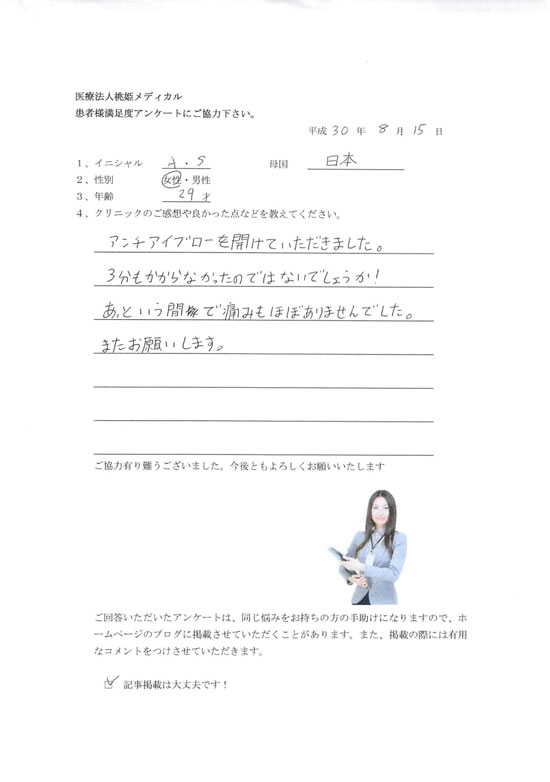 医療法人桃姫メディカル
患者様満足度アンケートにご協力下さい。
平成 30 年 8 月 15 日
1、イニシャル A・S 母国 日本
2、性別 女性・男性
3、年齢 29 才
4、クリニックのご感想や良かった点などを教えてください。
アンチアイブローを開けていただきました。
3分もかからなかったのではないでしょうか!
あっという間で痛みもほぼありませんでした。
またお願いします。
ご協力有り難うございました。今後ともよろしくお願いいたします
ご回答いただいたアンケートは、同じ悩みをお持ちの方の手助けになりますので、ホ
ームページのブログに掲載させていただくことがあります。また、掲載の際には有用
なコメントをつけさせていただきます。
☑ 記事掲載は大丈夫です!